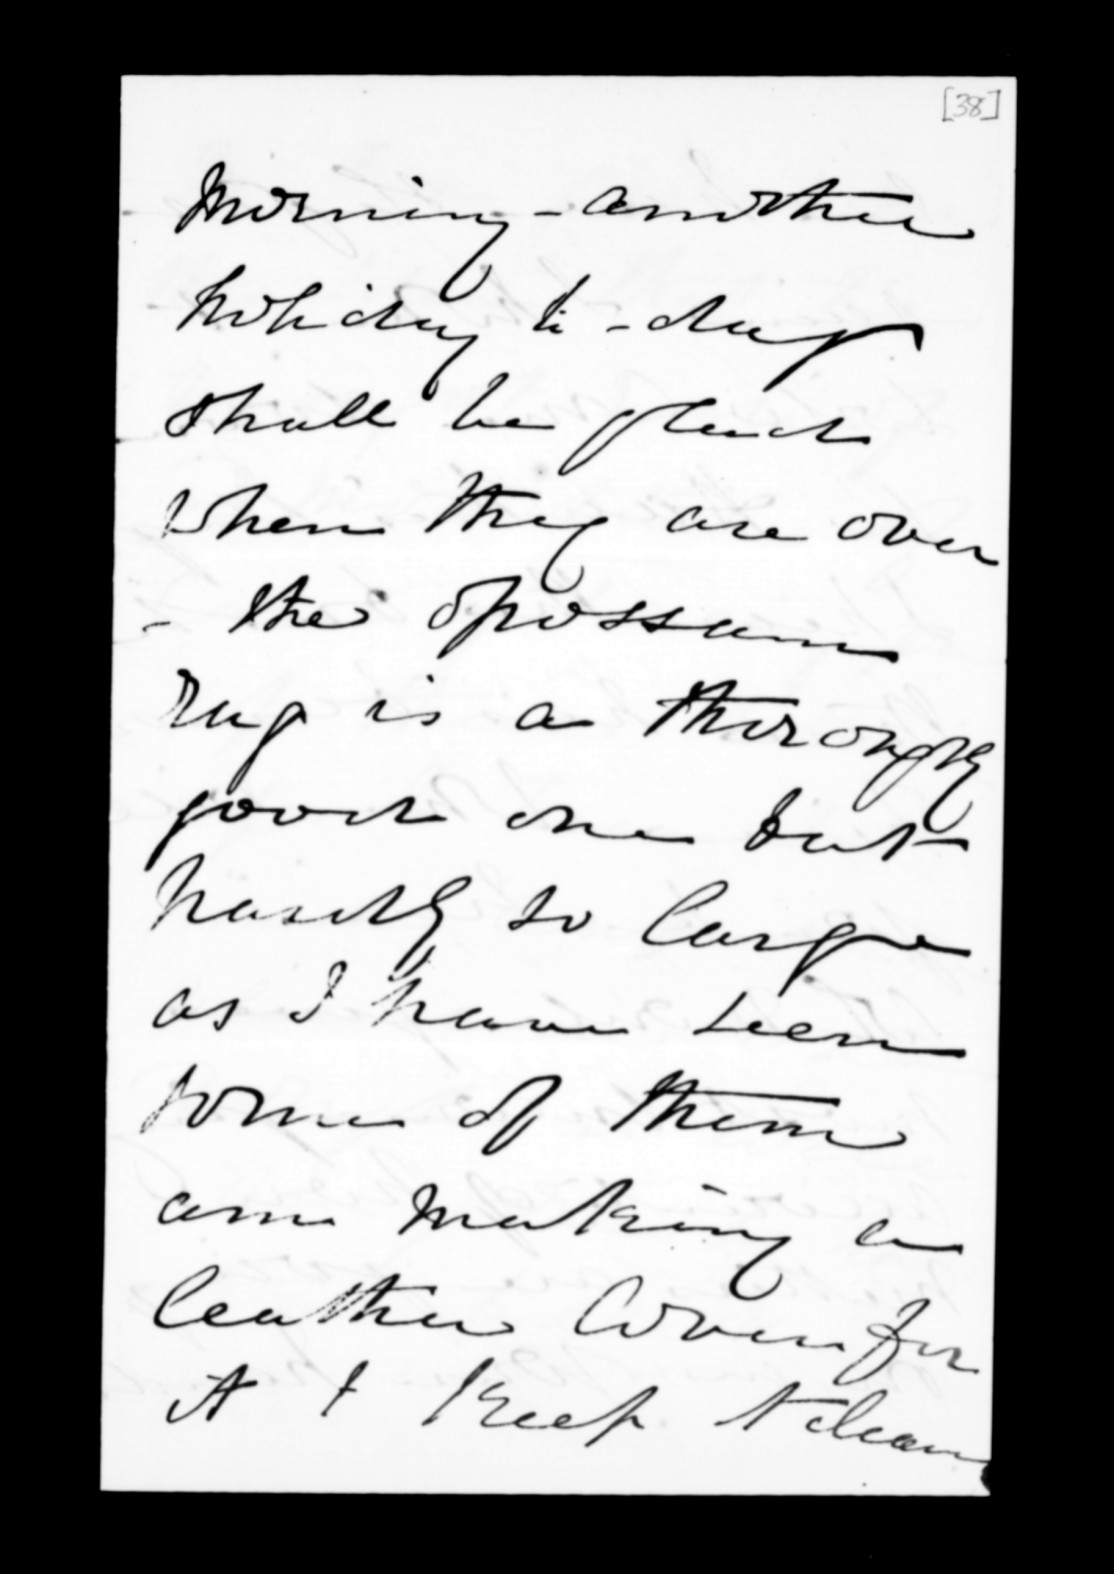 [38]
morning - another
holiday to-day
shall be glad
when they are over
- the opossum
rug is a thoroughly
good one but
hardly so large
as I have seen
some of them
am making a
leather cover for
it to keep it clean